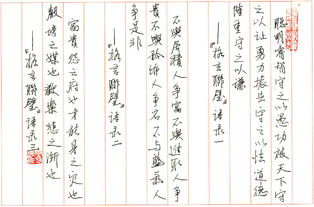 聪明睿智守之以愚功被天下守
之以让勇力振世守之以怯道德
隆重守之以谦
——《格言聯璧》语录一
不與居積人争富不與進取人争
貴不與矜饰人争名不與盛氣人
争是非
——《格言聯璧》语录二
富貴怨之府也才能身之灾也
聲名谤之媒也歡樂悲之渐也
——《格言聯璧》语录三